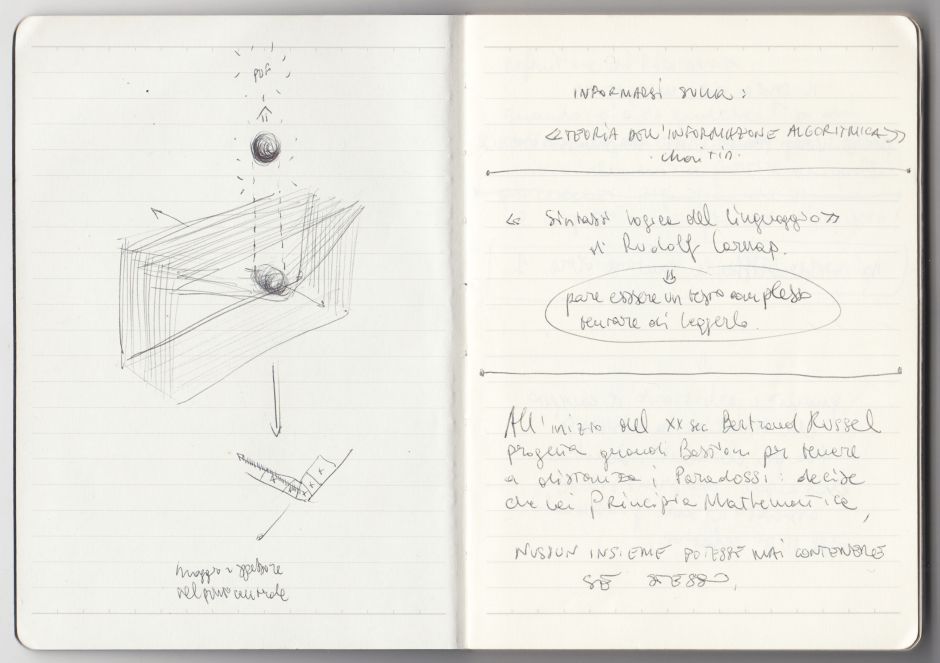 PUF
maggior spessore
nel punto centrale
INFORMARSI SULLA:
«TEORIA DELL'INFORMAZIONE ALGORITMICA»
. Chaitin.
« Sintassi logica del linguaggio»
di Rudolf Carnap.
pare essere un testo complesso
tentare di leggerlo.
All'inizio del XX sec Bertrand Russel
progetta grandi Bastioni per tenere
a distanza i Paradossi: decise
che nei Principia Mathematica,
NESSUN INSIEME POTESSE MAI CONTENERE
SÉ STESSO.